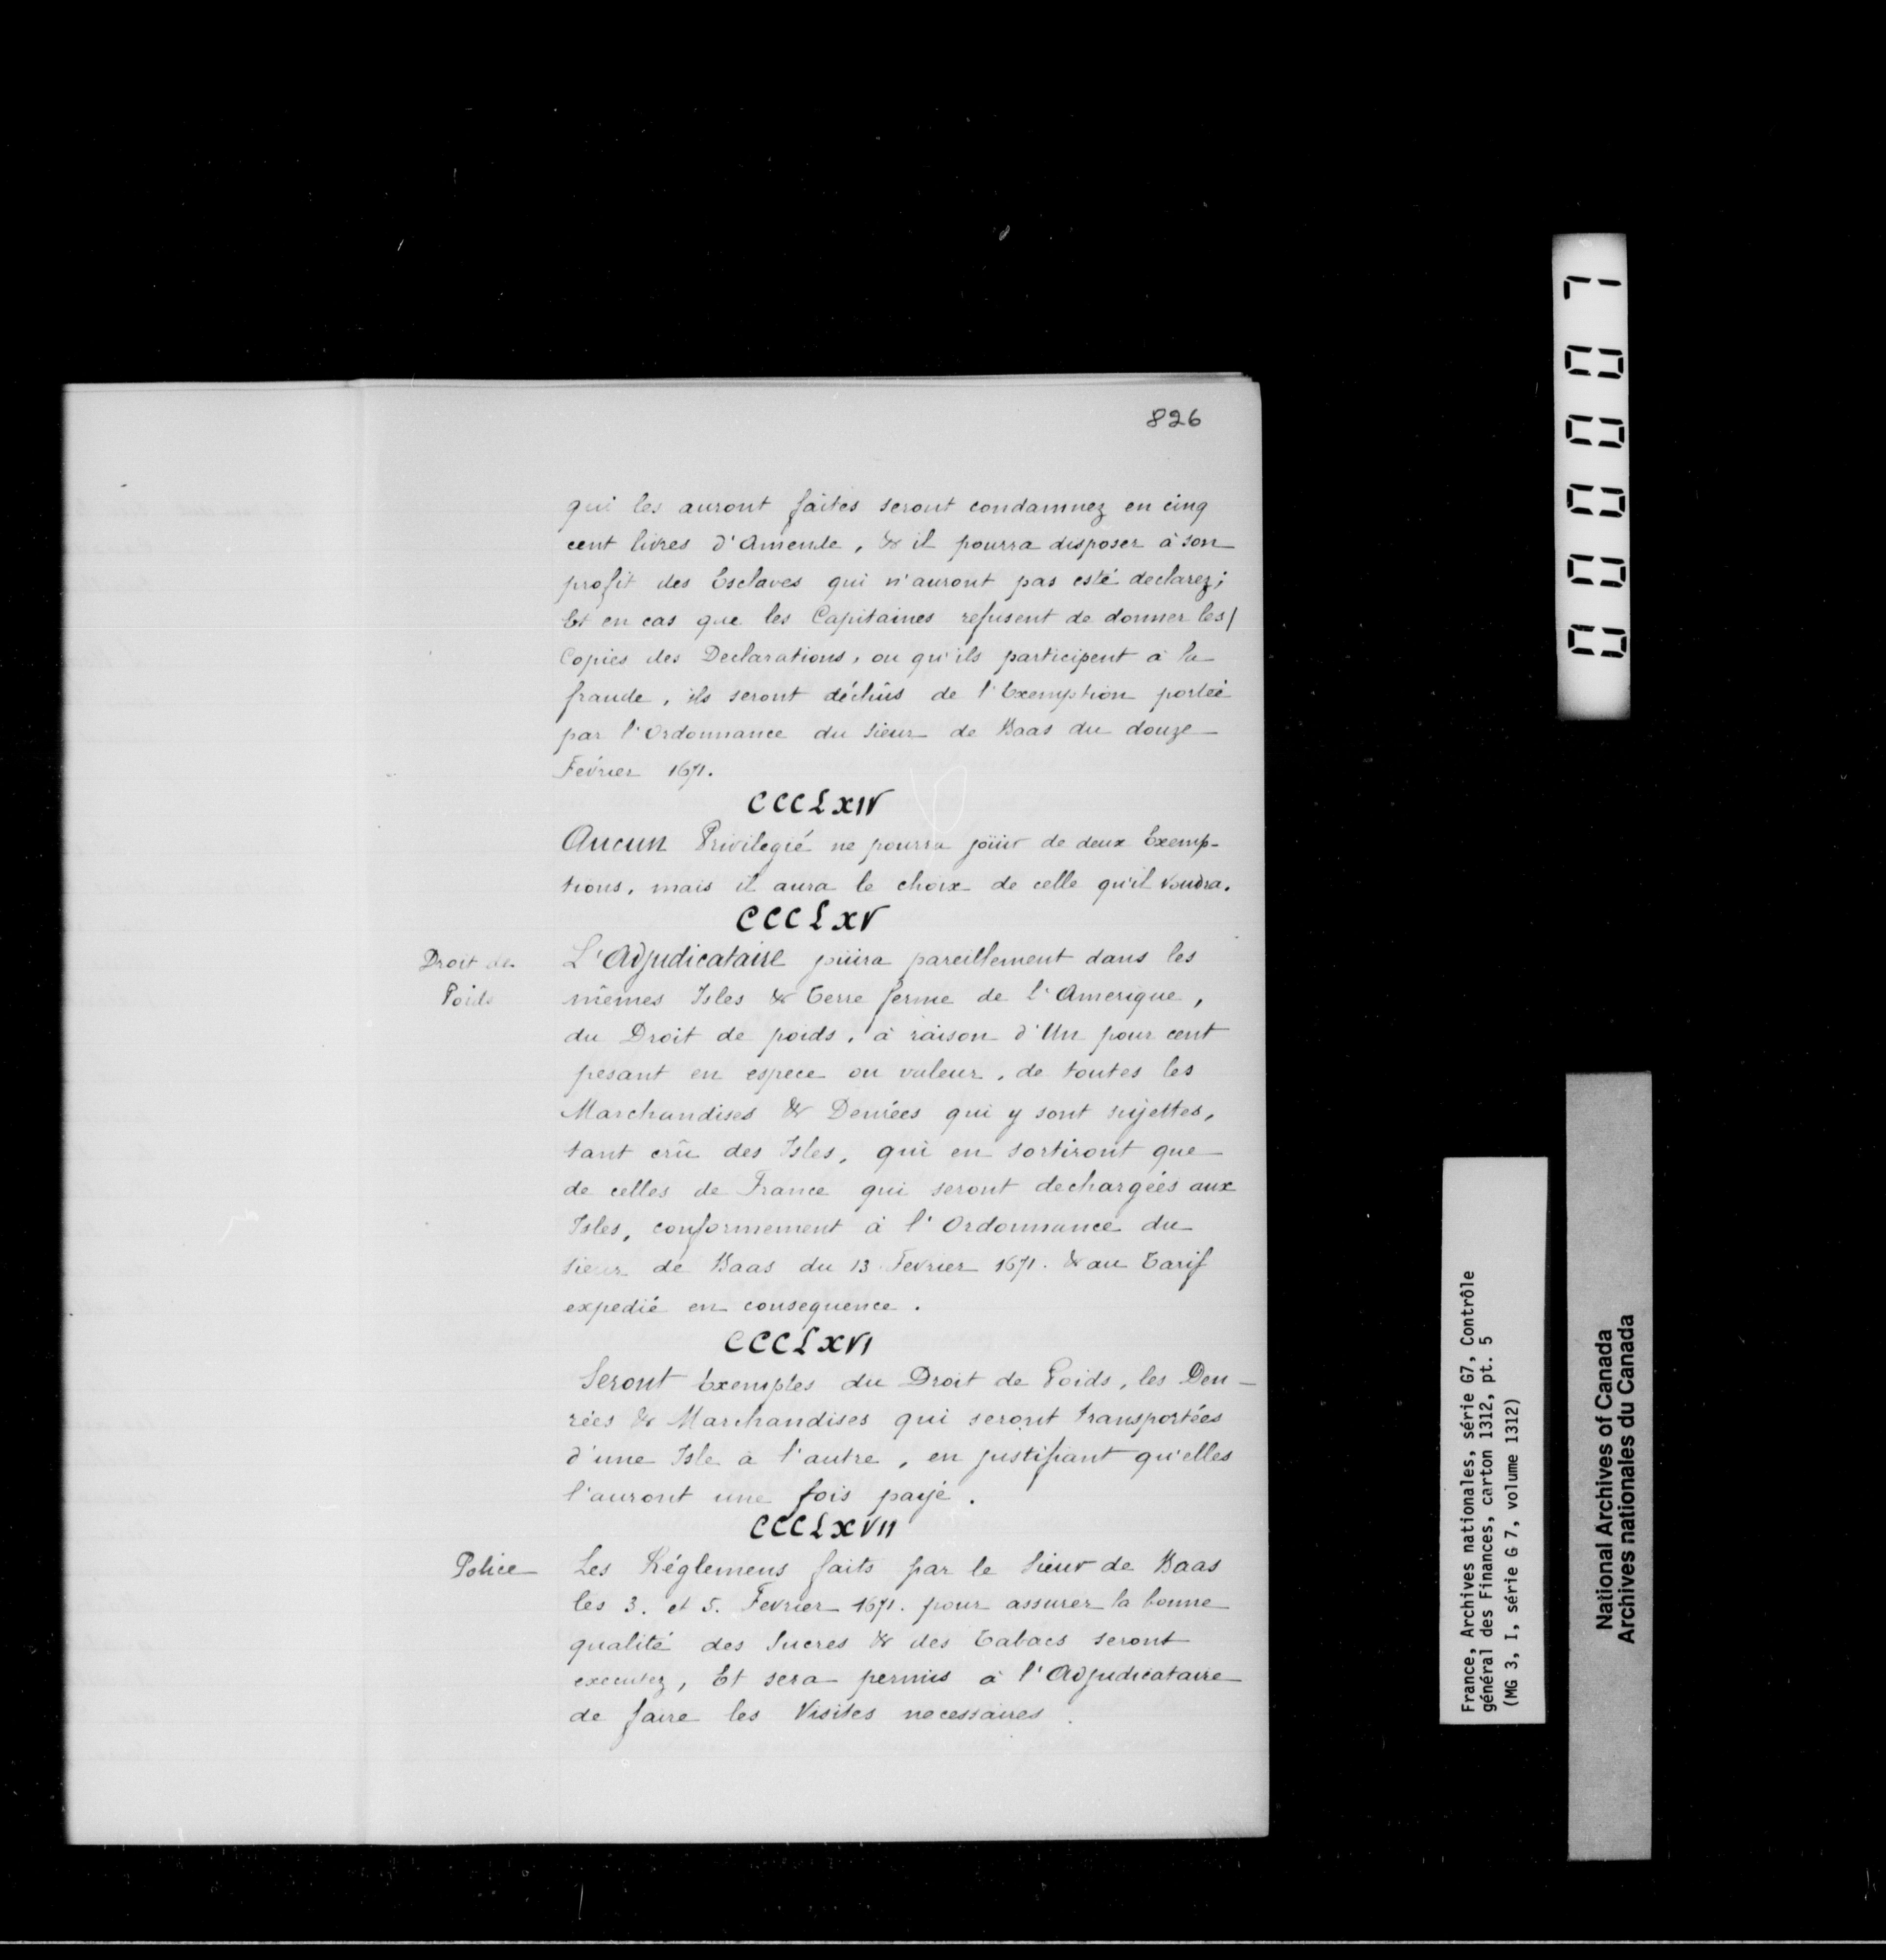 826
qui les auront faites seront condamnez en cinq
cent livres d'Amende, & il pourra disposer à son
profit des Esclaves qui n'auront pas esté declarez;
Et en cas que les Capitaines refusent de donner les/
Copies des Declarations, ou qu'ils participent à la
fraude, ils seront déchûs de l'Exemption portée
par l'Ordonnance du Sieur de Baas du douze
Février 1671.
CCCLXIV
Aucun Privilegié ne pourra joüir de deux Exemp-
tions, mais il aura le choix de celle qu'il voudra.
CCCLXV
Droit de
Poids
L'Adjudicataire joüira pareillement dans les
mêmes Isles & Terre ferme de l'Amerique,
du Droit de poids, à raison d'Un pour cent
pesant en espece ou valeur, de toutes les
Marchandises & Denrées qui y sont sujettes,
tant crû des Isles, qui en sortiront que
de celles de France qui seront dechargées aux
Isles, conformement à l'Ordonnance du
Sieur de Baas du 13 Fevrier 1671. & au Tarif
expedié en consequence.
CCCLXVI
Seront Exemptes du Droit de Poids, les Den-
rées & Marchandises qui seront transportées
d'une Isle à l'autre, en justifiant qu'elles
l'auront une fois payé.
CCCLXVII
Police
Les Réglemens faits par le Sieur de Baas
les 3. et 5. Fevrier 1671. pour assurer la bonne
qualité des Sucres & des Tabacs seront
executez, Et sera permis à l'Adjudicataire
de faire les Visites necessaires.
000007
France, Archives nationales, série G7, Contrôle
général des Finances, carton 1312, pt. 5
(MG 3, I, série G 7, volume 1312)
National Archives of Canada
Archives nationales du Canada